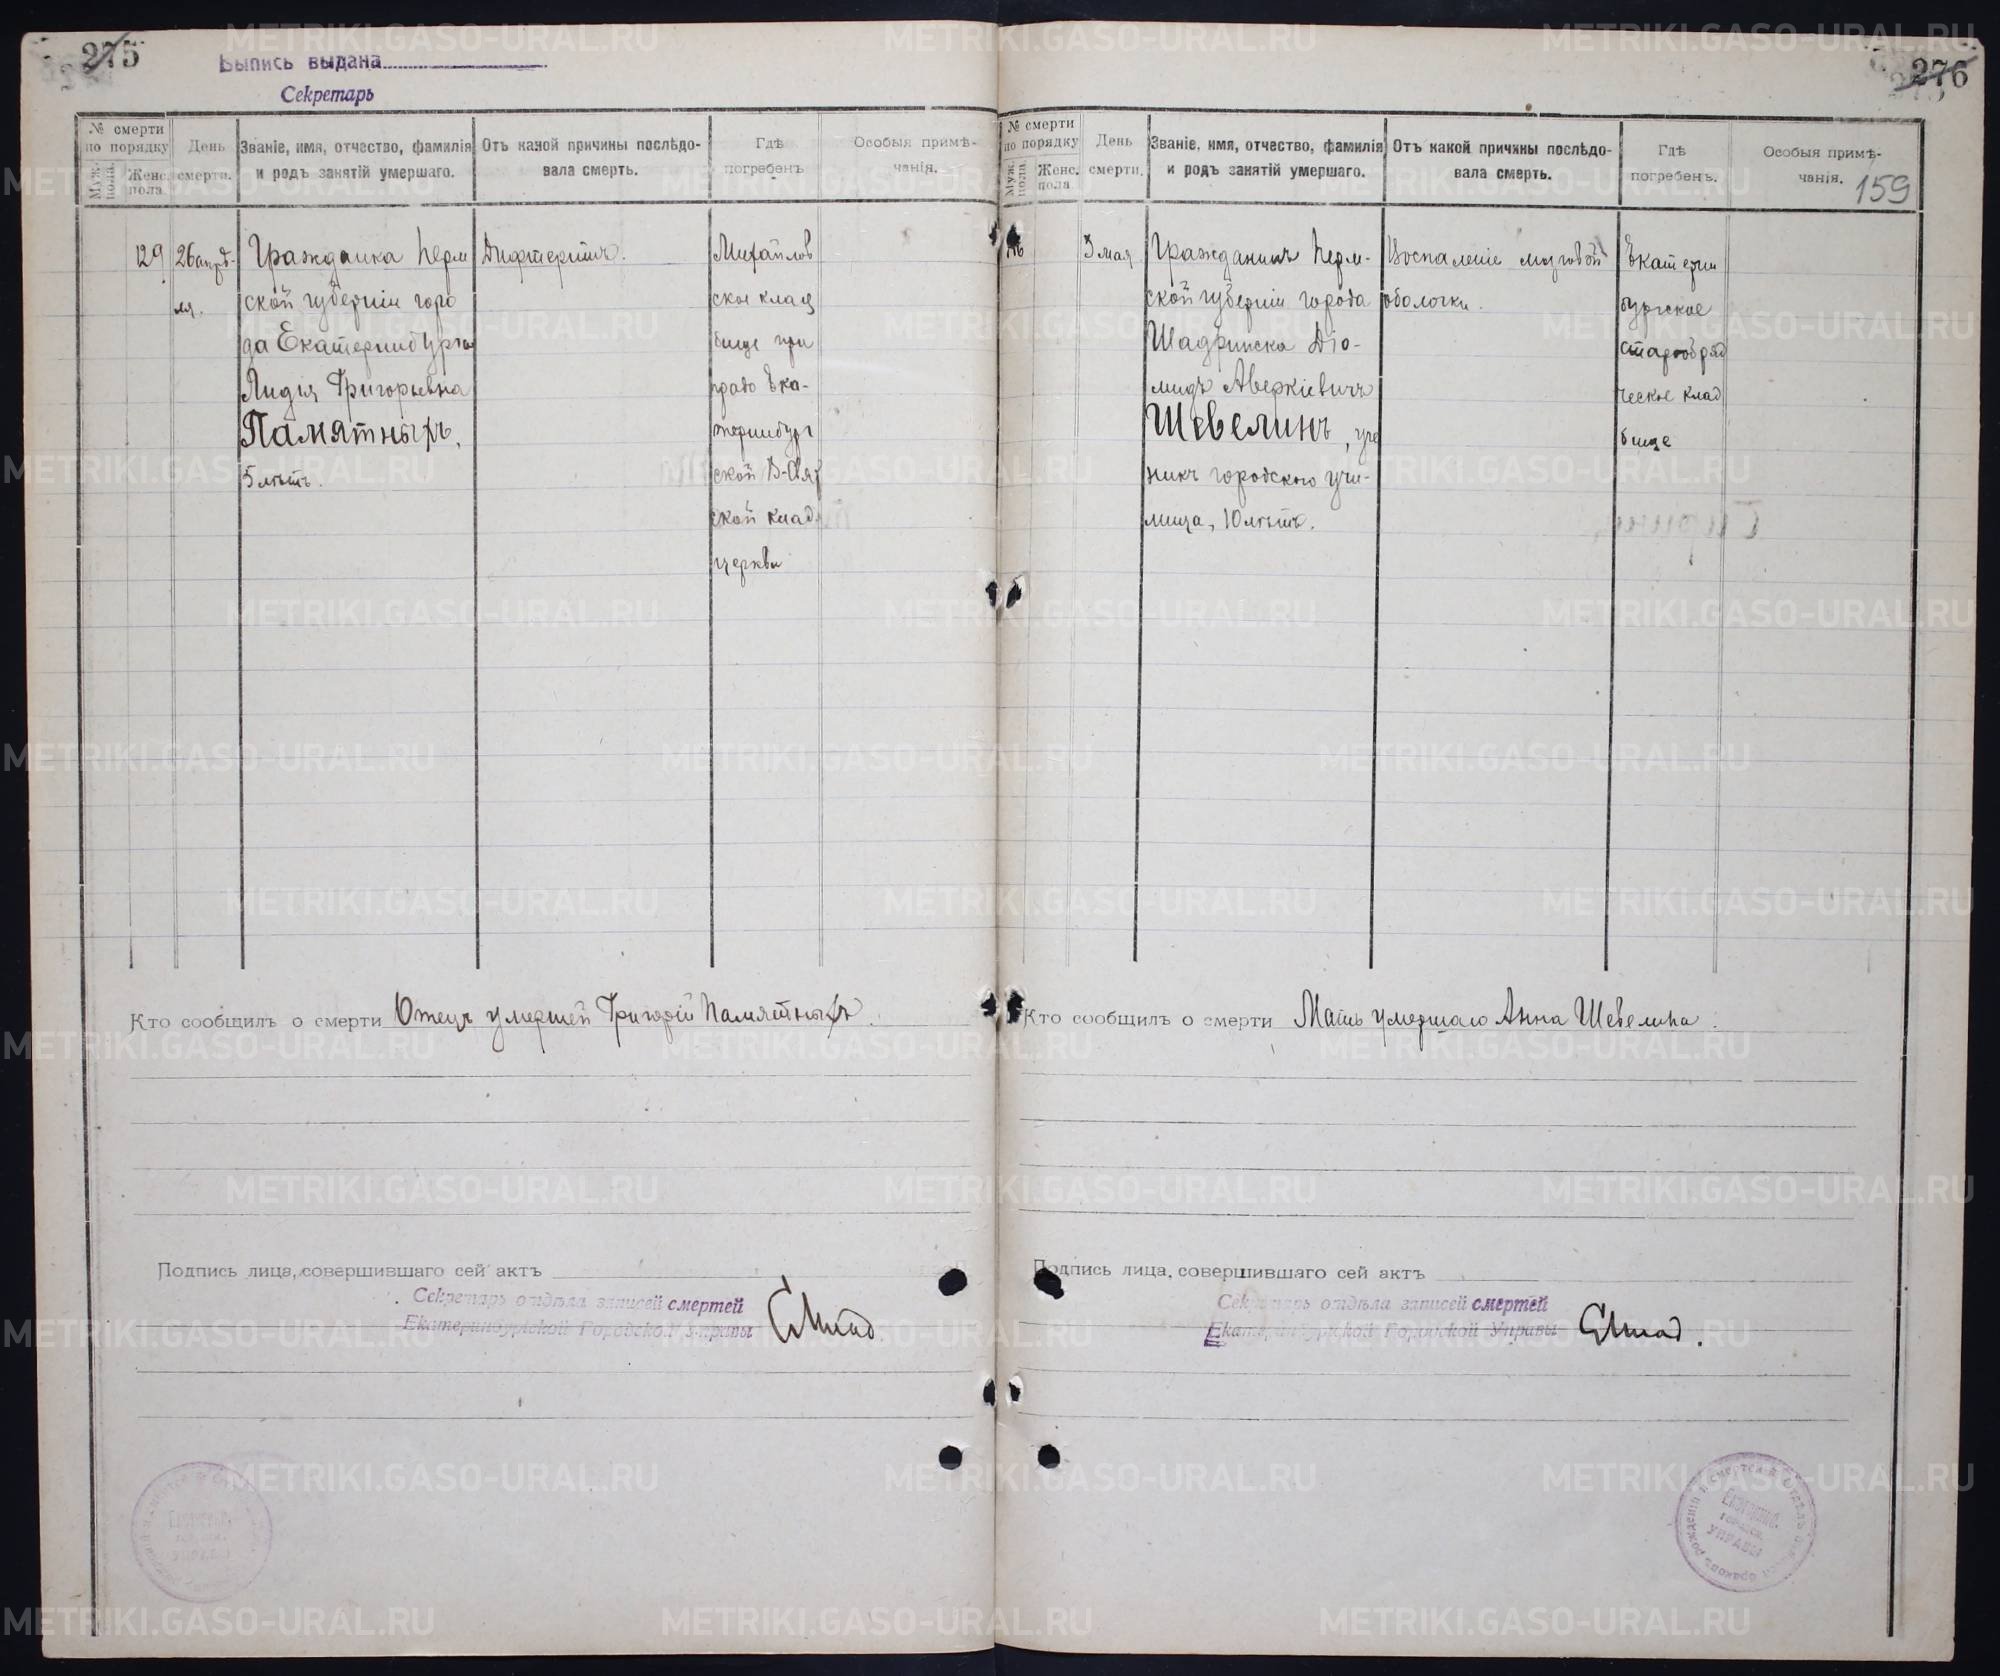 275
Выпись выдана
Секретарь
№ смерти по порядку
Муж. пола.
Женс. пола
День смерти.
Званіе, имя, отчество, фамилія и родъ занятій умершаго.
Отъ какой причины послѣдовала смерть.
Гдѣ погребенъ
Особыя примѣчанія.
129
26 апрѣ-
ля.
Гражданка Перм
ской губерніи горо
да Екатеринбурга
Лидія Григорьевна
Памятныхъ,
5 лѣтъ.
Дифтеритъ.
Михайлов
ское клад
бище при
право Ека-
теринбург
ской
ской клад.
церкви
Кто сообщилъ о смерти Отецъ умершей Григорій Памятныхъ.
Подпись лица, совершившаго сей актъ
Секретарь отдѣла записей смертей
Екатеринбургской Городской Управы
276
159
№ смерти по порядку
Муж. пола.
Женс. пола
День смерти.
Званіе, имя, отчество, фамилія и родъ занятій умершаго.
Отъ какой причины послѣдовала смерть.
Гдѣ погребенъ.
Особыя примѣчанія.
3 мая
Гражданинъ Перм-
ской губерніи города
Шадринска Діо-
мидъ Аверкіевичъ
Шевелинъ, уче
никъ городского учи-
лища, 10 лѣтъ.
Воспаленіе мозговой
оболочки.
Екатерин
бургское
старообряд
ческое клад
бище
Кто сообщилъ о смерти Мать умершаго Анна Шевелина.
Подпись лица, совершившаго сей актъ
Секретарь отдѣла записей смертей
Екатеринбургской Городской Управы
METRIKI.GASO-URAL.RU